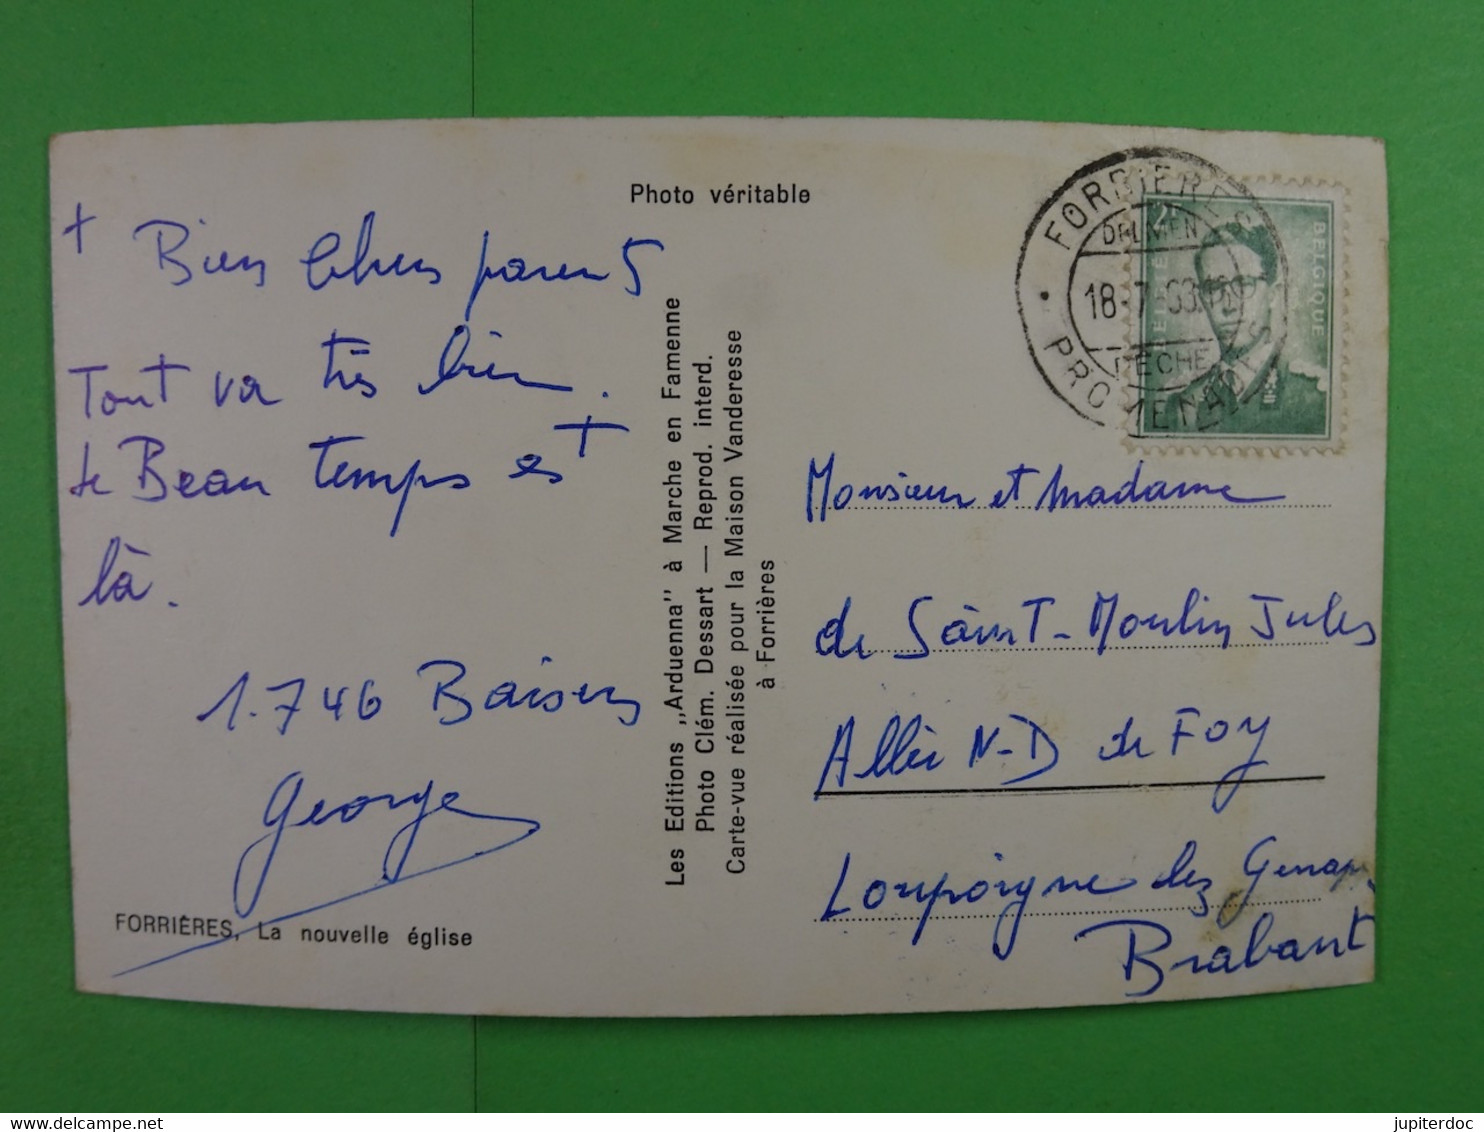 Photo véritable
+
Bien Chers parents
Tout va très bien.
le Beau temps est
là.
1.746 Baisers
George
FORRIÈRES, La nouvelle église
Les Editions ,,Arduenna'' à Marche en Famenne
Photo Clém. Dessart — Reprod. interd.
Carte-vue réalisée pour la Maison Vanderesse
à Forrières
FORRIERES
18-7-63
PECHE
PROMENADES
2F
BELGIQUE
Monsieur et Madame
de Saint-Moulin Jules
Allée N-D de Foy
Loupoigne lez Genappe
Brabant
www.delcampe.net
jupiterdoc